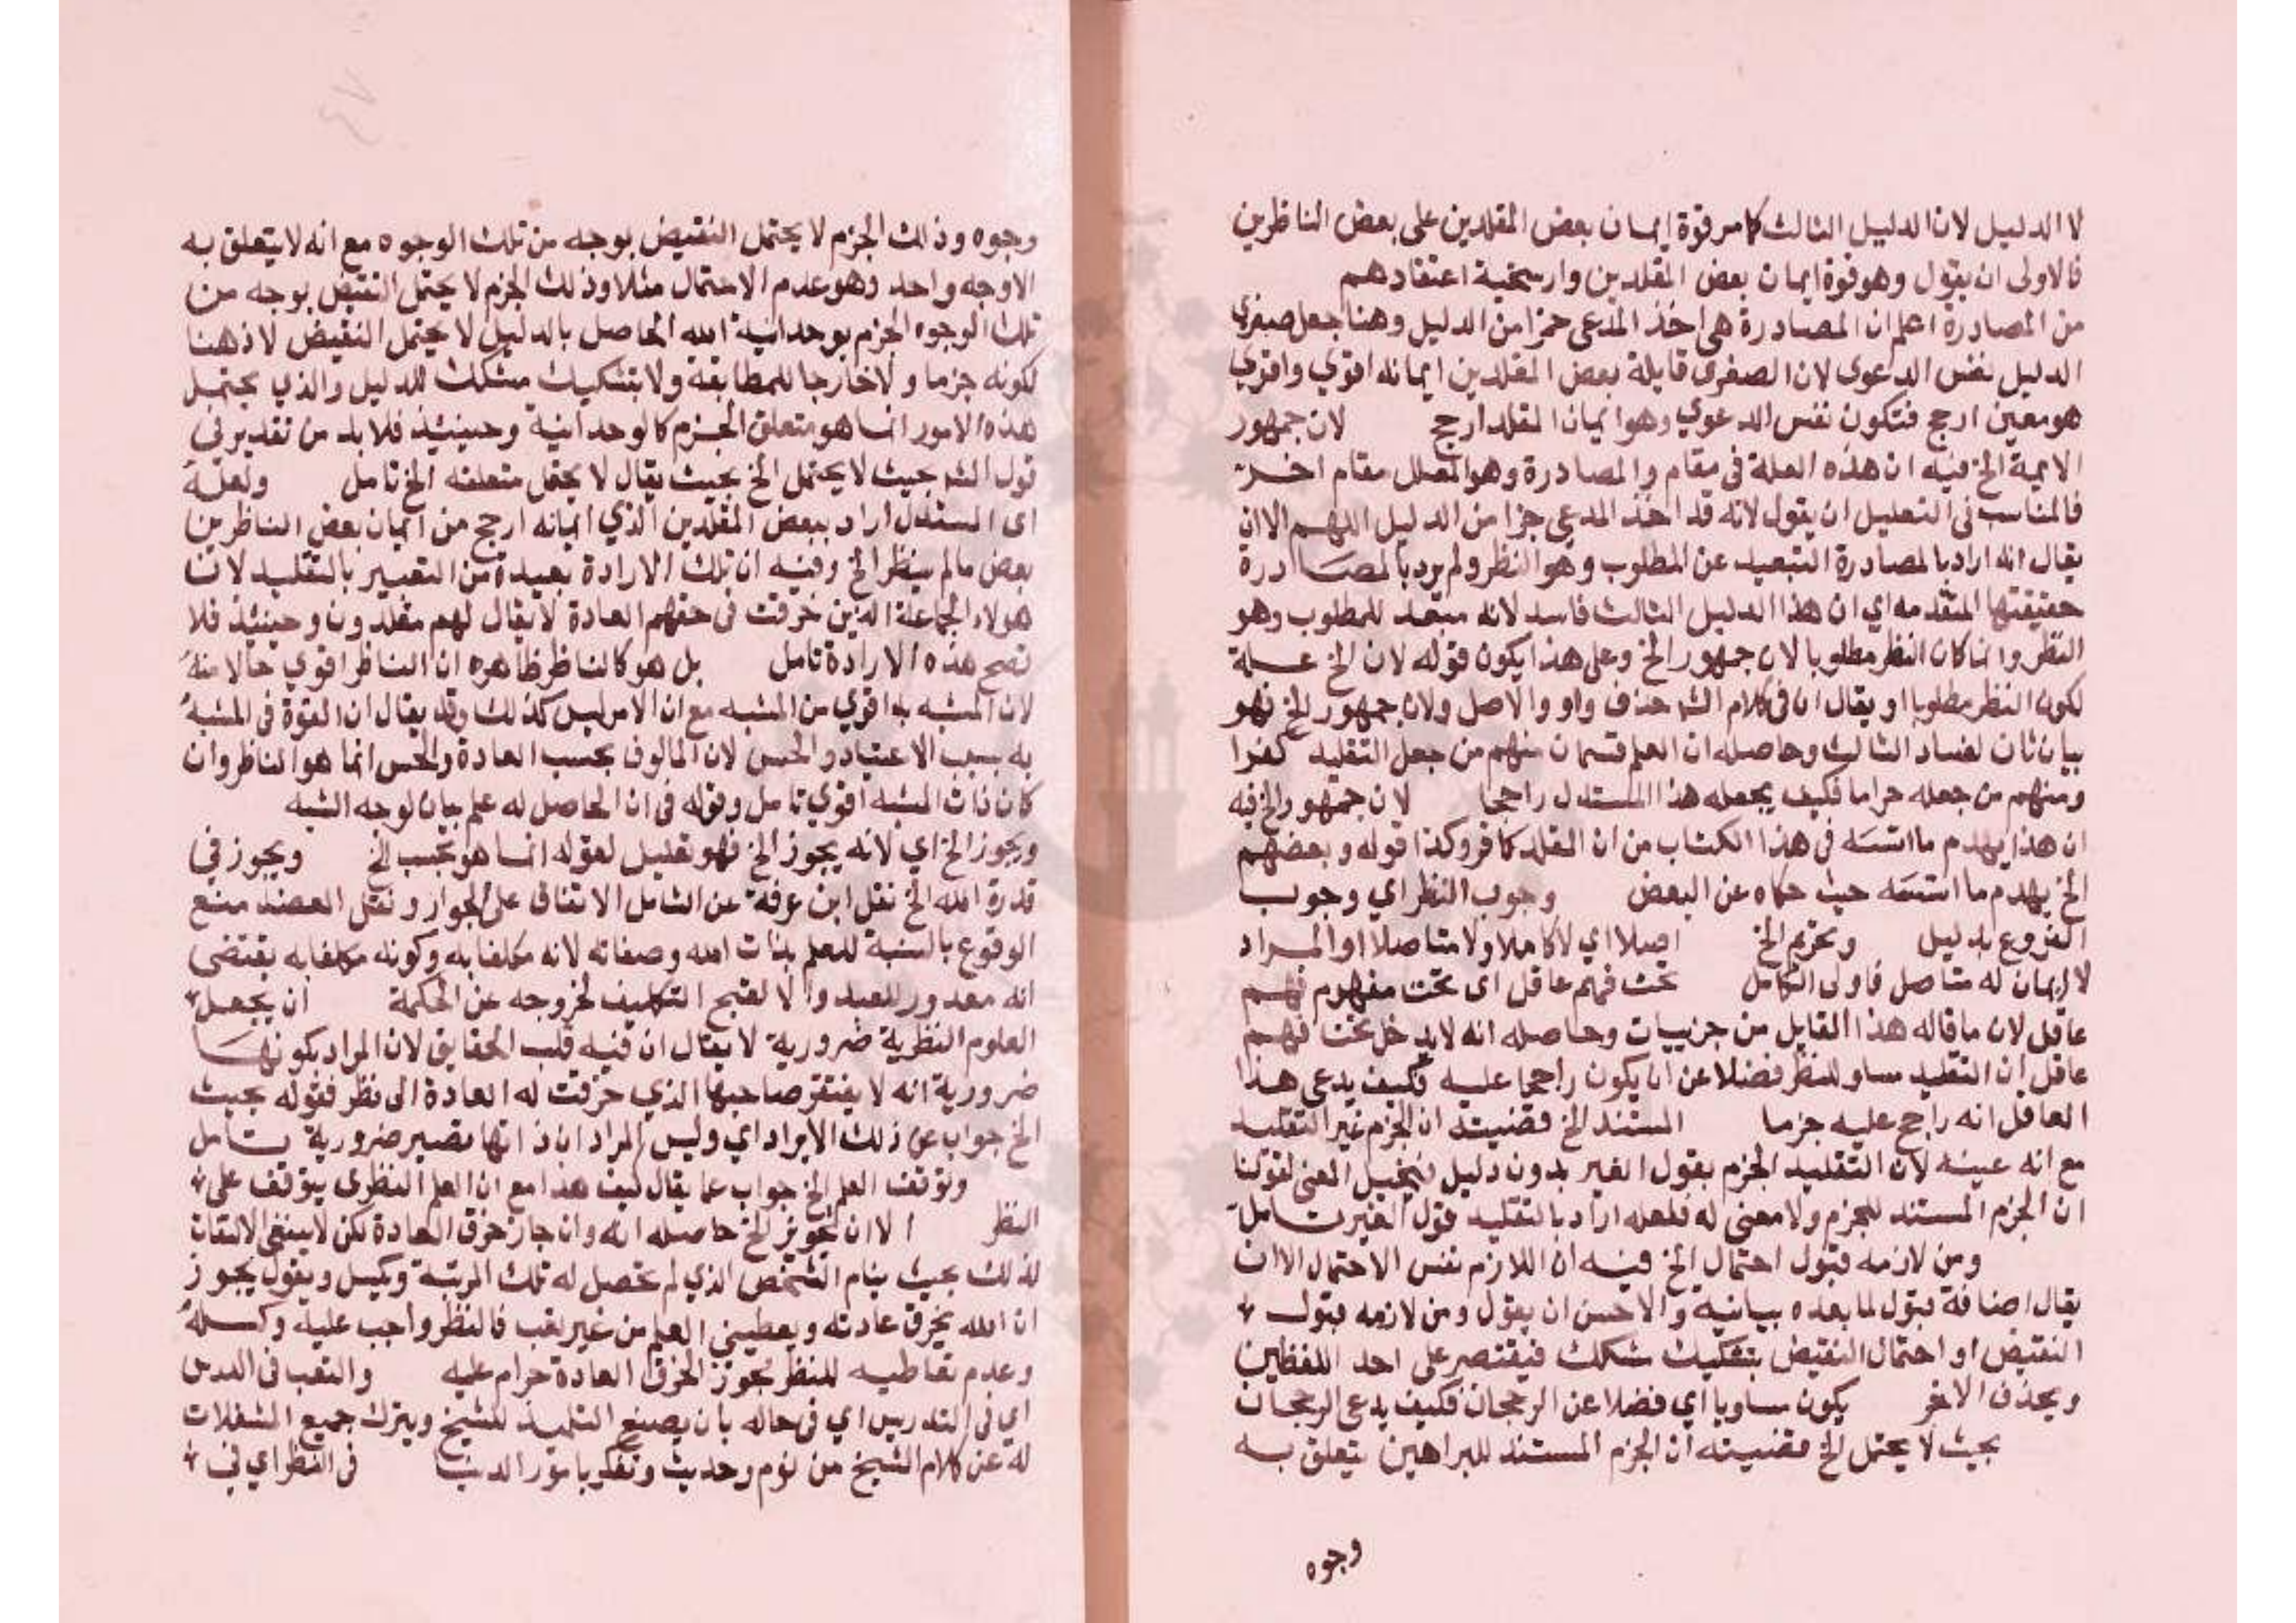 لا الدليل لان الدليل الثالث كما مر قوة ايمان بعض المقلدين على بعض الناظرين
فالاولى ان يقول وهو قوة ايمان بعض المقلدين وارسخية اعتقادهم
من المصادرة اعلم ان المصادرة هى اخذ المدعى جزا من الدليل وهنا جعل صغرى
الدليل نفس الدعوى لان الصغرى قايلة بعض المقلدين ايمانه اقوي واقوي
هو معين ارجح فتكون نفس الدعوي وهو ايمان المقلد ارجح لان جمهور
الايمة الخ فيه ان هذه العلة فى مقام والمصادرة وهو المعلل مقام اخر
فالمناسب فى التعليل ان يقول لانه قد اخذ المدعى جزا من الدليل اللهم الا ان
يقال انه اراد بالمصادرة التبعيد عن المطلوب وهو النظر ولم يرد بالمصادرة
حقيقتها المتقدمه اي ان هذا الدليل الثالث فاسد لانه مبعد للمطلوب وهو
النظر وانما كان النظر مطلوبا لان جمهور الخ وعلى هذا يكون قوله لان الخ علة
لكون النظر مطلوبا او يقال ان فى كلام الش حذف واو والاصل ولان جمهور الخ فهو
بيان ثان لفساد الثالث وحاصله ان العلم قسمان منهم من جعل التقليد كفرا
ومنهم من جعله حراما فكيف يجعله هذا المستدل راجحا لان جمهور الخ فيه
ان هذا يهدم ما اسسه فى هذا الكتاب من ان المقلد كافر وكذا قوله وبعضهم
الخ يهدم ما اسسه حيث حكاه عن البعض وجوب النظر اي وجوب
الفروع بدليل وتحريم الخ اصلا اي لا كاملا ولا متاصلا او المراد
لا ايمان له متاصل فاولى الكامل تحت فهم عاقل اى تحت مفهوم فهم
عاقل لان ما قاله هذا القايل من جزييات وحاصله انه لا يدخل تحت فهم
عاقل ان التقليد مساو للنظر فضلا عن ان يكون راجحا عليه فكيف يدعى هذا
العاقل انه راجح عليه جزما المستند الخ قضيته ان الجزم غير التقليد
مع انه عينه لان التقليد الجزم بقول الغير بدون دليل المعنى لقولنا
ان الجزم المستند للجزم ولا معنى له فلعله اراد بالتقليد قول الغير تامل
ومن لازمه قبول احتمال الخ فيه ان اللازم نفس الاحتمال الا ان
يقال اضافة قبول لما بعده بيانية والاحسن ان يقول ومن لازمه قبول
النقيض او احتمال النقيض بتشكيك مشكك فيقتصر على احد اللفظين
ويحذف الاخر يكون مساويا اي فضلا عن الرجحان فكيف يدعى الرجحان
بحيث لا يحتمل الخ قضيته ان الجزم المستند للبراهين يتعلق به
وجوه
وجوه وذلك الجزم لا يحتمل النقيض بوجه من تلك الوجوه مع انه لا يتعلق به
الا وجه واحد وهو عدم الاحتمال مثلا وذلك الجزم لا يحتمل النقيض بوجه من
تلك الوجوه الجزم بوحدانية الله الحاصل بالدليل لا يحتمل النقيض لا ذهنا
لكونه جزما ولا خارجا للمطابقة ولا بتشكيك مشكك للدليل والذي يحتمل
هذه الامور انما هو متعلق الجزم كالوحدانية وحينيئذ فلا بد من تقدير فى
قول الش حيث لا يحتمل الخ بحيث يقال لا يحتمل متعلقه الخ تامل ولعله
اى المستدل اراد ببعض المقلدين الذي ايمانه ارجح من ايمان بعض الناظرين
بعض ما لم ينظر الخ وفيه ان تلك الارادة بعيدة من التعبير بالتقليد لان
هولاء الجماعة الذين خرقت فى حقهم العادة لا يقال لهم مقلدون وحينئذ فلا
تصح هذه الارادة تامل بل هو كالناظر ظاهره ان الناظر اقوي حالا منه
لان المشبه به اقوي من المشبه مع ان الامر ليس كذلك وقد يقال ان القوة فى المشبه
به بسبب الاعتياد والحس لان المالوف بحسب العادة والحس انما هو الناظر وان
كان ذات المشبه اقوي تامل وقوله فى ان الحاصل له علم بيان لوجه الشبه
ويجوز الخ اي لانه يجوز الخ فهو تعليل لقوله انما هو بحسب الخ ويجوز فى
قدرة الله الخ نقل ابن عرفة عن الشامل الاتفاق على الجواز ونقل العضد منع
الوقوع بالنسبة للعلم بذات الله وصفاته لانه مكلفا به وكونه مكلفا به يقتضى
انه مقدور للعبد والا لقبح التكليف لخروجه عن الحكمة ان يجعل
العلوم النظرية ضرورية لا يقال ان فيه قلب الحقايق لان المراد بكونها
ضرورية انه لا يفتقر صاحبها الذي خرقت له العادة الى نظر فقوله بحيث
الخ جواب عن ذلك الايراد اي وليس المراد ان ذاتها تصير ضرورية تامل
وتوقف العلم الخ جواب عما يقال كيف هذا مع ان العلم النظرى يتوقف على
النظر الا ان تجويز الخ حاصله انه وان جاز خرق العادة لكن لا ينبغى الالتفات
لذلك بحيث ينام الشخص الذي لم تحصل له تلك المرتبة ويكسل ويقول يجوز
ان الله يخرق عادته ويعطيني العلم من غير تعب فالنظر واجب عليه وكسله
وعدم تعاطيه للنظر تجوز الخرق العادة حرام عليه والتعب فى الدرس
اي فى التدريس اي فى حاله بان يصنع التلميذ للشيخ ويترك جميع المشغلات
له عن كلام الشيخ من نوم وحديث وتفكر بامور الدنيا فى النظر اي فى